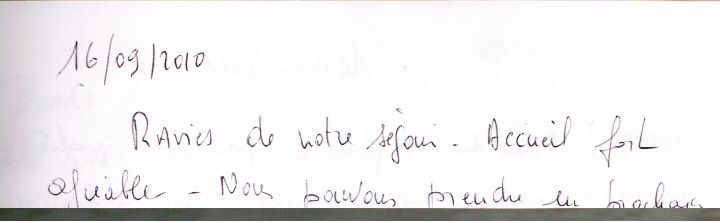 16/09/2010
Ravies de notre séjour - Accueil fort
agréable - Nous pouvons prendre en prochain